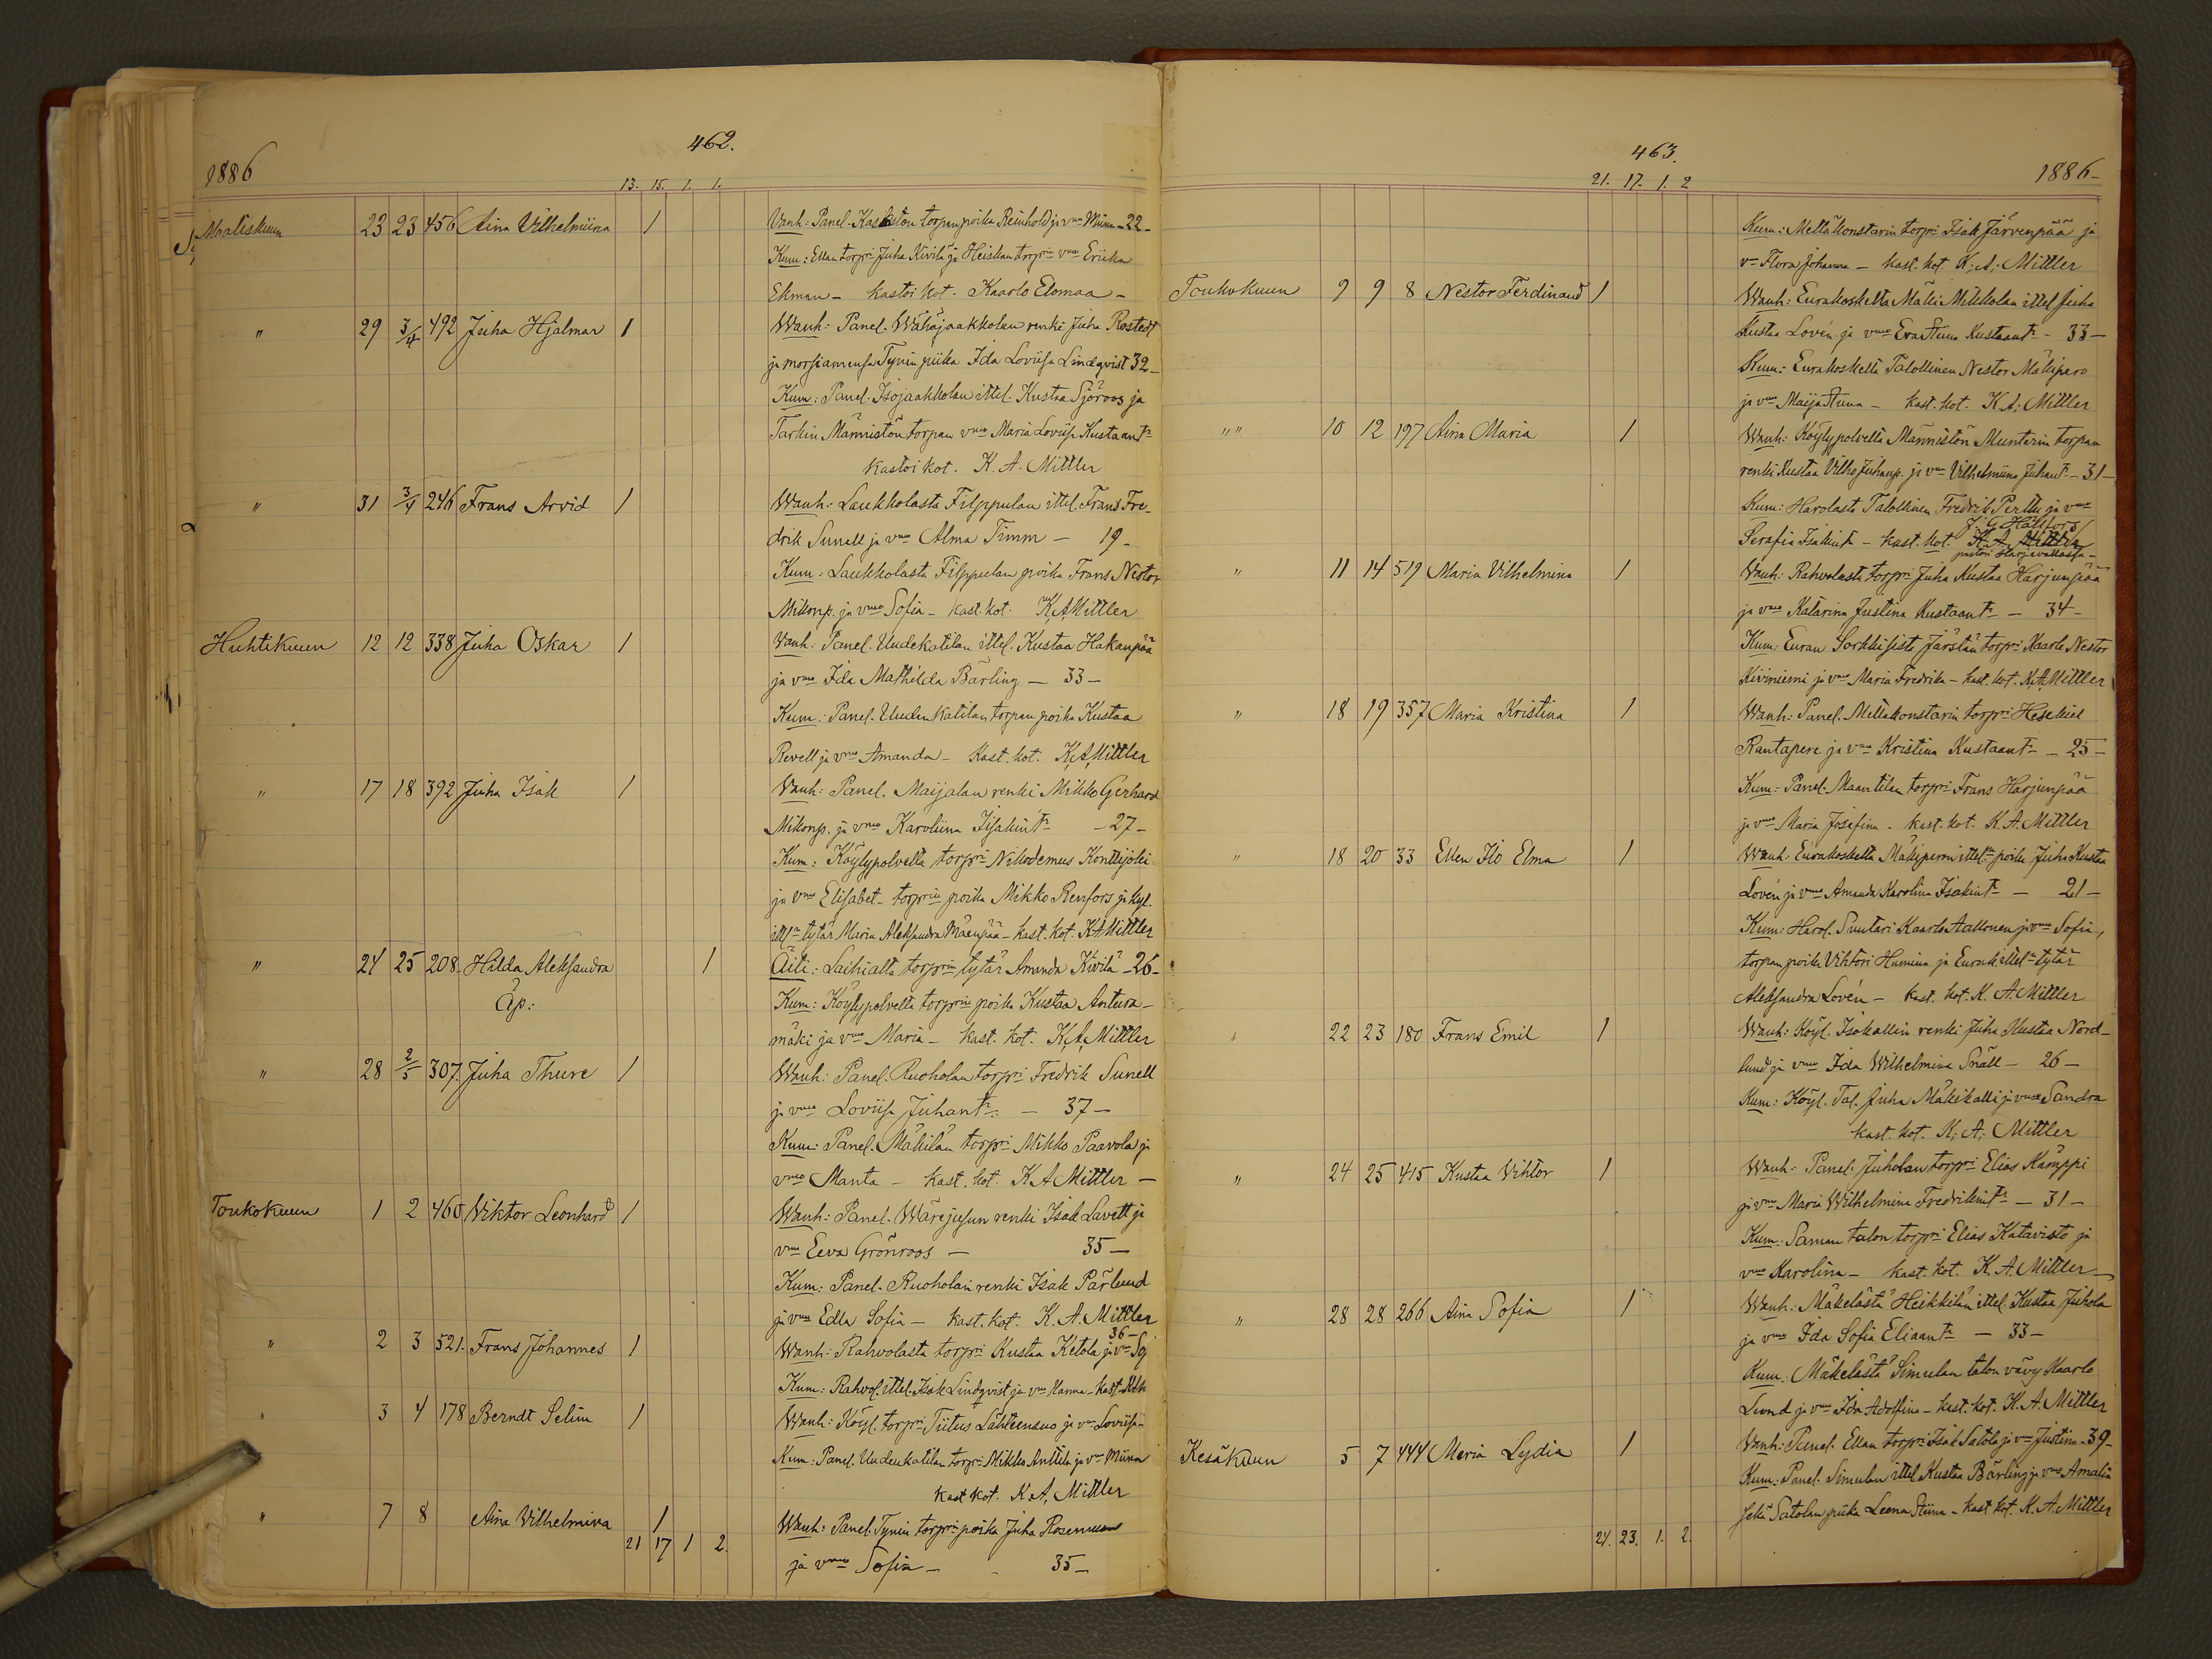 462.
1886
13. 15. 1. 1.
Maaliskuun 23 23 456 Aina Vilhelmiina 1 Vanh: Panel. Kaskiston torpan poika Reinhold ja vmo Miina - 22 -
Kum: Ellan torpri Juha Kivilä ja Heiskan torprin vmo Erica
Ekman - kastoi kot. Kaarlo Elomaa -
" 29 3/4 492 Juha Hjalmar 1 Wanh: Panel. Wähäjaakkolan renki Juha Rostedt
ja morsiamensa Tynin piika Ida Loviisa Lindqvist 32 -
Kum: Panel. Isojaakkolan ittel. Kustaa Sjöroos ja
Tarkin Männistön torpan vmo Maria Lovisa Kustaantr
kastoi kot. K. A. Mittler
" 31 3/4 246 Frans Arvid 1 Wanh: Laukkolasta Filppulan ittel. Frans Fre-
drik Sunell ja vmo Alma Timm - 19 -
Kum: Laukkolasta Filppulan poika Frans Nestor
Mikonp. ja vmo Sofia - kast. kot. K. A. Mittler
Huhtikuun 12 12 338 Juha Oskar 1 Vanh: Panel. Uudekatilan ittel. Kustaa Hakanpää
ja vmo Ida Mathilda Bärling - 33 -
Kum: Panel. Uuden Katilan torpan poika Kustaa
Revell ja vmo Amanda - Kast. kot. K. A. Mittler
" 17 18 392 Juha Isak 1 Vanh: Panel. Maijalan renki Mikko Gerhard
Mikonp. ja vmo Karoliina Iisakintr - 27 -
Kum: Köylypolvelta torpri Nikodemus Konttijoki
ja vmo Elisabet - torprin poika Mikko Renfors ja Kyl.
ittln tytär Maria Aleksandra Mäenpää - kast. kot. K A Mittler
" 24 25 208 Hilda Aleksandra 1 Äiti: Laihialta torprin tytär Amanda Kivilä - 26 -
Äp: Kum: Köylypolvelta torprin poika Kustaa Antura-
mäki ja vmo Maria - kast. kot. K. A. Mittler
" 28 2/5 307. Juha Thure 1 Wanh: Panel. Ruoholan torpri Fredrik Sunell
ja vmo Loviisa Juhantr. - 37 -
Kum: Panel. Mäkilän torpri Mikko Paavola ja
vmo Manta - kast. kot. K. A Mittler -
Toukokuun 1 2 460 Viktor Leonhard 1 Wanh: Panel. Wärejusun renki Isak Lavett ja
vmo Eeva Grönroos - 35 -
Kum: Panel. Ruoholan renki Isak Pärlund
ja vmo Edla Sofia - kast. kot. K. A. Mittler
" 2 3 521. Frans Johannes 1 Wanh: Rahvolasta torpri Kustaa Ketola ja vmo 36 -
Kum: Rahvol. ittel. Isak Lindqvist ja vmo Hanna - kast.
" 3 4 178 Berndt Selim 1 Wanh: Köyl. torpri Tiitus Lähteensuo ja vmo Loviisa -
Kum: Panel. Uudenkatilan torpri Mikko Anttila ja vmo Miina
kast kot. K. A. Mittler
" 7 8 Aina Vilhelmina 1 Wanh: Panel. Tynin torpri poika Juha
21 17 1 2. ja vmo Sofia - 35 -
463.
1886 -
21. 17. 1. 2
Kum: Mellä Konstarin torpri Isak Järvenpää ja
vmo Flora Johanna - kast. kot. K. A. Mittler
Toukokuun 9 9 8 Nestor Ferdinand 1 Wanh: Eurakoskelta Mäki Mikkolan ittel Juha
Kustaa Lovén ja vmo Eva Stiina Kustaantr - 33 -
Kum: Eurakoskelta Talollinen Nestor Mäkipere
ja vmo Maija Stiina - kast. kot. K. A. Mittler
"" 10 12 197 Aina Maria 1 Wanh: Köylypolvelta Männistön Munterin torpan
renki Kustaa Vilho Juhanp. ja vmo Vilhelmiina Juhantr - 31 -
Kum: Harolasta Talollinen Fredrik Perttu ja vmo
J. G. Hällfors
Serafia Isakintr - kast. kot. K. A. Mittler
pastori Harjavallassa -
" 11 14 519 Maria Vilhelmina 1 Wanh: Rahvolasta torpri Juha Kustaa Harjunpää
ja vmo Katarina Justina Kustaantr - 34 -
Kum: Euran Sorkkisista Järstän torpri Kaarle Nestor
Kiviniemi ja vmo Maria Fredrika - kast. kot. K. A. Mittler
" 18 19 357 Maria Kristina 1 Wanh: Panel. Mellä Konstarin torpri Hesekiel
Rantapere ja vmo Kristina Kustaantr - 25 -
Kum: Panel. Maantilan torpri Frans Harjunpää
ja vmo Maria Josefina - kast. kot. K. A. Mittler
" 18 20 33 Ellen Ilo Elma 1 Wanh: Eurakoskelta Mäkiperen ittel:n poika Juha Kustaa
Lovén ja vmo Amanda Karolina Isakintr - 21 -
Kum: Harol. Suutari Kaarlo Aaltonen ja vmo Sofia,
torpan poika Vihtori Humina ja Eurak. ittel:n tytär
Aleksandra Lovén - kast. kot. K. A. Mittler
" 22 23 180 Frans Emil 1 Wanh: Köyl. Isokallin renki Juha Kustaa Nord-
lund ja vmo Ida Wilhelmina Snäll - 26 -
Kum: Köyl. Tal. Juha Mäkikalli ja vmo Sandra
kast. kot. K. A. Mittler
" 24 25 415 Kustaa Vihtor 1 Wanh: Panel. Juholan torpri Elias Kämppi
ja vmo Maria Wilhelmina Fredrikintr - 31 -
Kum: Saman talon torpri Elias Katavisto ja
vmo Karolina - kast. kot. K. A. Mittler -
" 28 28 266 Aina Sofia 1 Wanh: Mäkelästä Heikkilän ittel. Kustaa Juhola
ja vmo Ida Sofia Eliaantr - 33 -
Kum: Mäkelästä Simulan talon vävy Kaarlo
Lund ja vmo Ida Adolfina - kast. kot. K. A. Mittler
Kesäkuun 5 7 444 Maria Lydia 1 Wanh: Panel. Ellan torpri Isak Satola ja vmo Justina - 39 -
Kum: Panel. Simulan ittel Kustaa Bärling ja vmo Amalia
sekä Satolan piika Leena Stiina - kast kot. K. A. Mittler
24. 23. 1. 2.